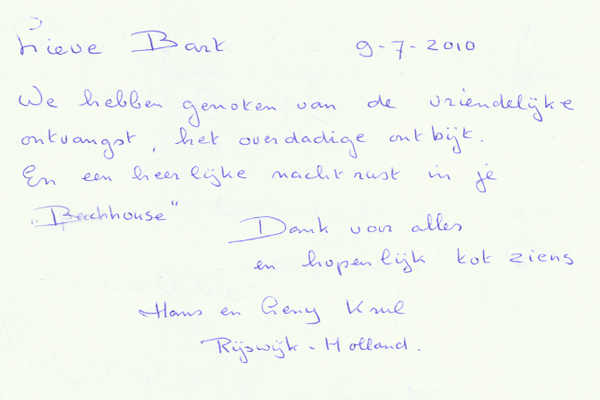 Lieve Bart 9-7-2010
We hebben genoten van de vriendelijke
ontvangst, het overdadige ontbijt.
En een heerlijke nachtrust in je
"Beachhouse"
Dank voor alles
en hopenlijk tot ziens
Hans en Geny Krul
Rijswijk - Holland.